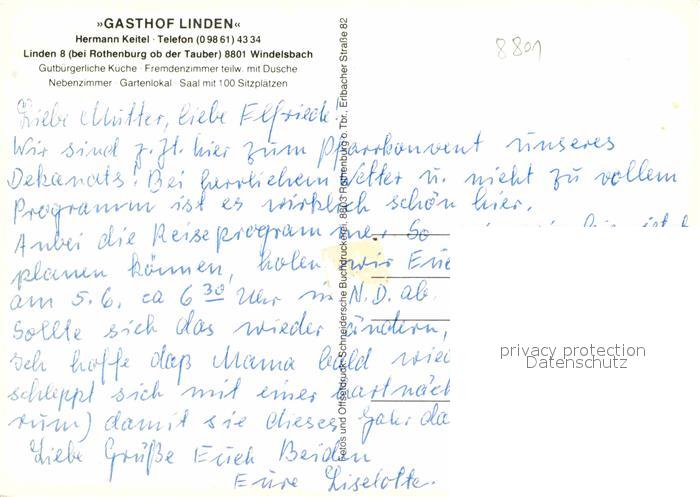 »GASTHOF LINDEN«
Hermann Keitel · Telefon (0 98 61) 43 34
Linden 8 (bei Rothenburg ob der Tauber) 8801 Windelsbach
Gutbürgerliche Küche · Fremdenzimmer teilw. mit Dusche
Nebenzimmer · Gartenlokal · Saal mit 100 Sitzplätzen
8801
Fotos und Offsetdruck: Schneidersche Buchdruckerei, 8803 Rothenburg o. Tbr., Erlbacher Straße 82
Liebe Mutter, liebe Elfriede!
Wir sind z. Zt. hier zum Pfarrkonvent unseres
Dekanats! Bei herrlichem Wetter u. nicht zu vollem
Programm ist es wirklich schön hier.
Anbei die Reiseprogramme. So
planen können, holen wir Euch
am 5.6. ca 6 30 Uhr in N.D. ab.
Sollte sich das wieder ändern,
Ich hoffe daß Mama bald wied
schleppt sich mit einer hartnäck
rum) damit sie dieses Jahr da
Liebe Grüße Euch Beiden
Eure Liselotte.
privacy protection
Datenschutz